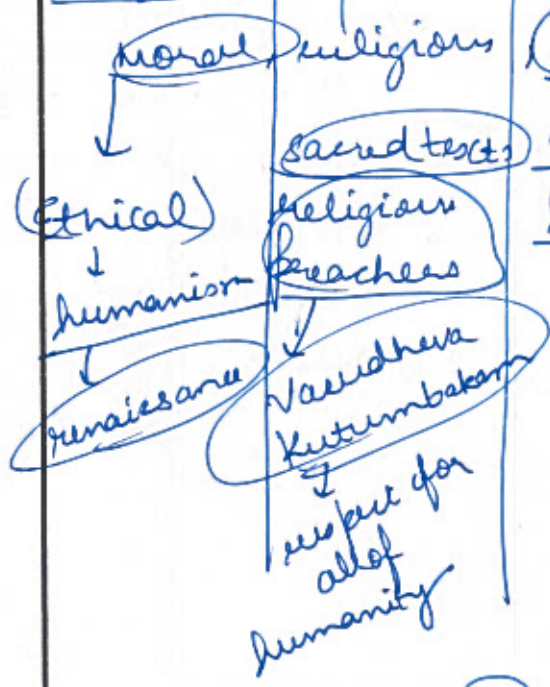 moral
(Ethical)
humanism
renaissance
religious
sacred text(s)
religious
preachers
Vasudheva
Kutumbakam
respect for
all of
humanity